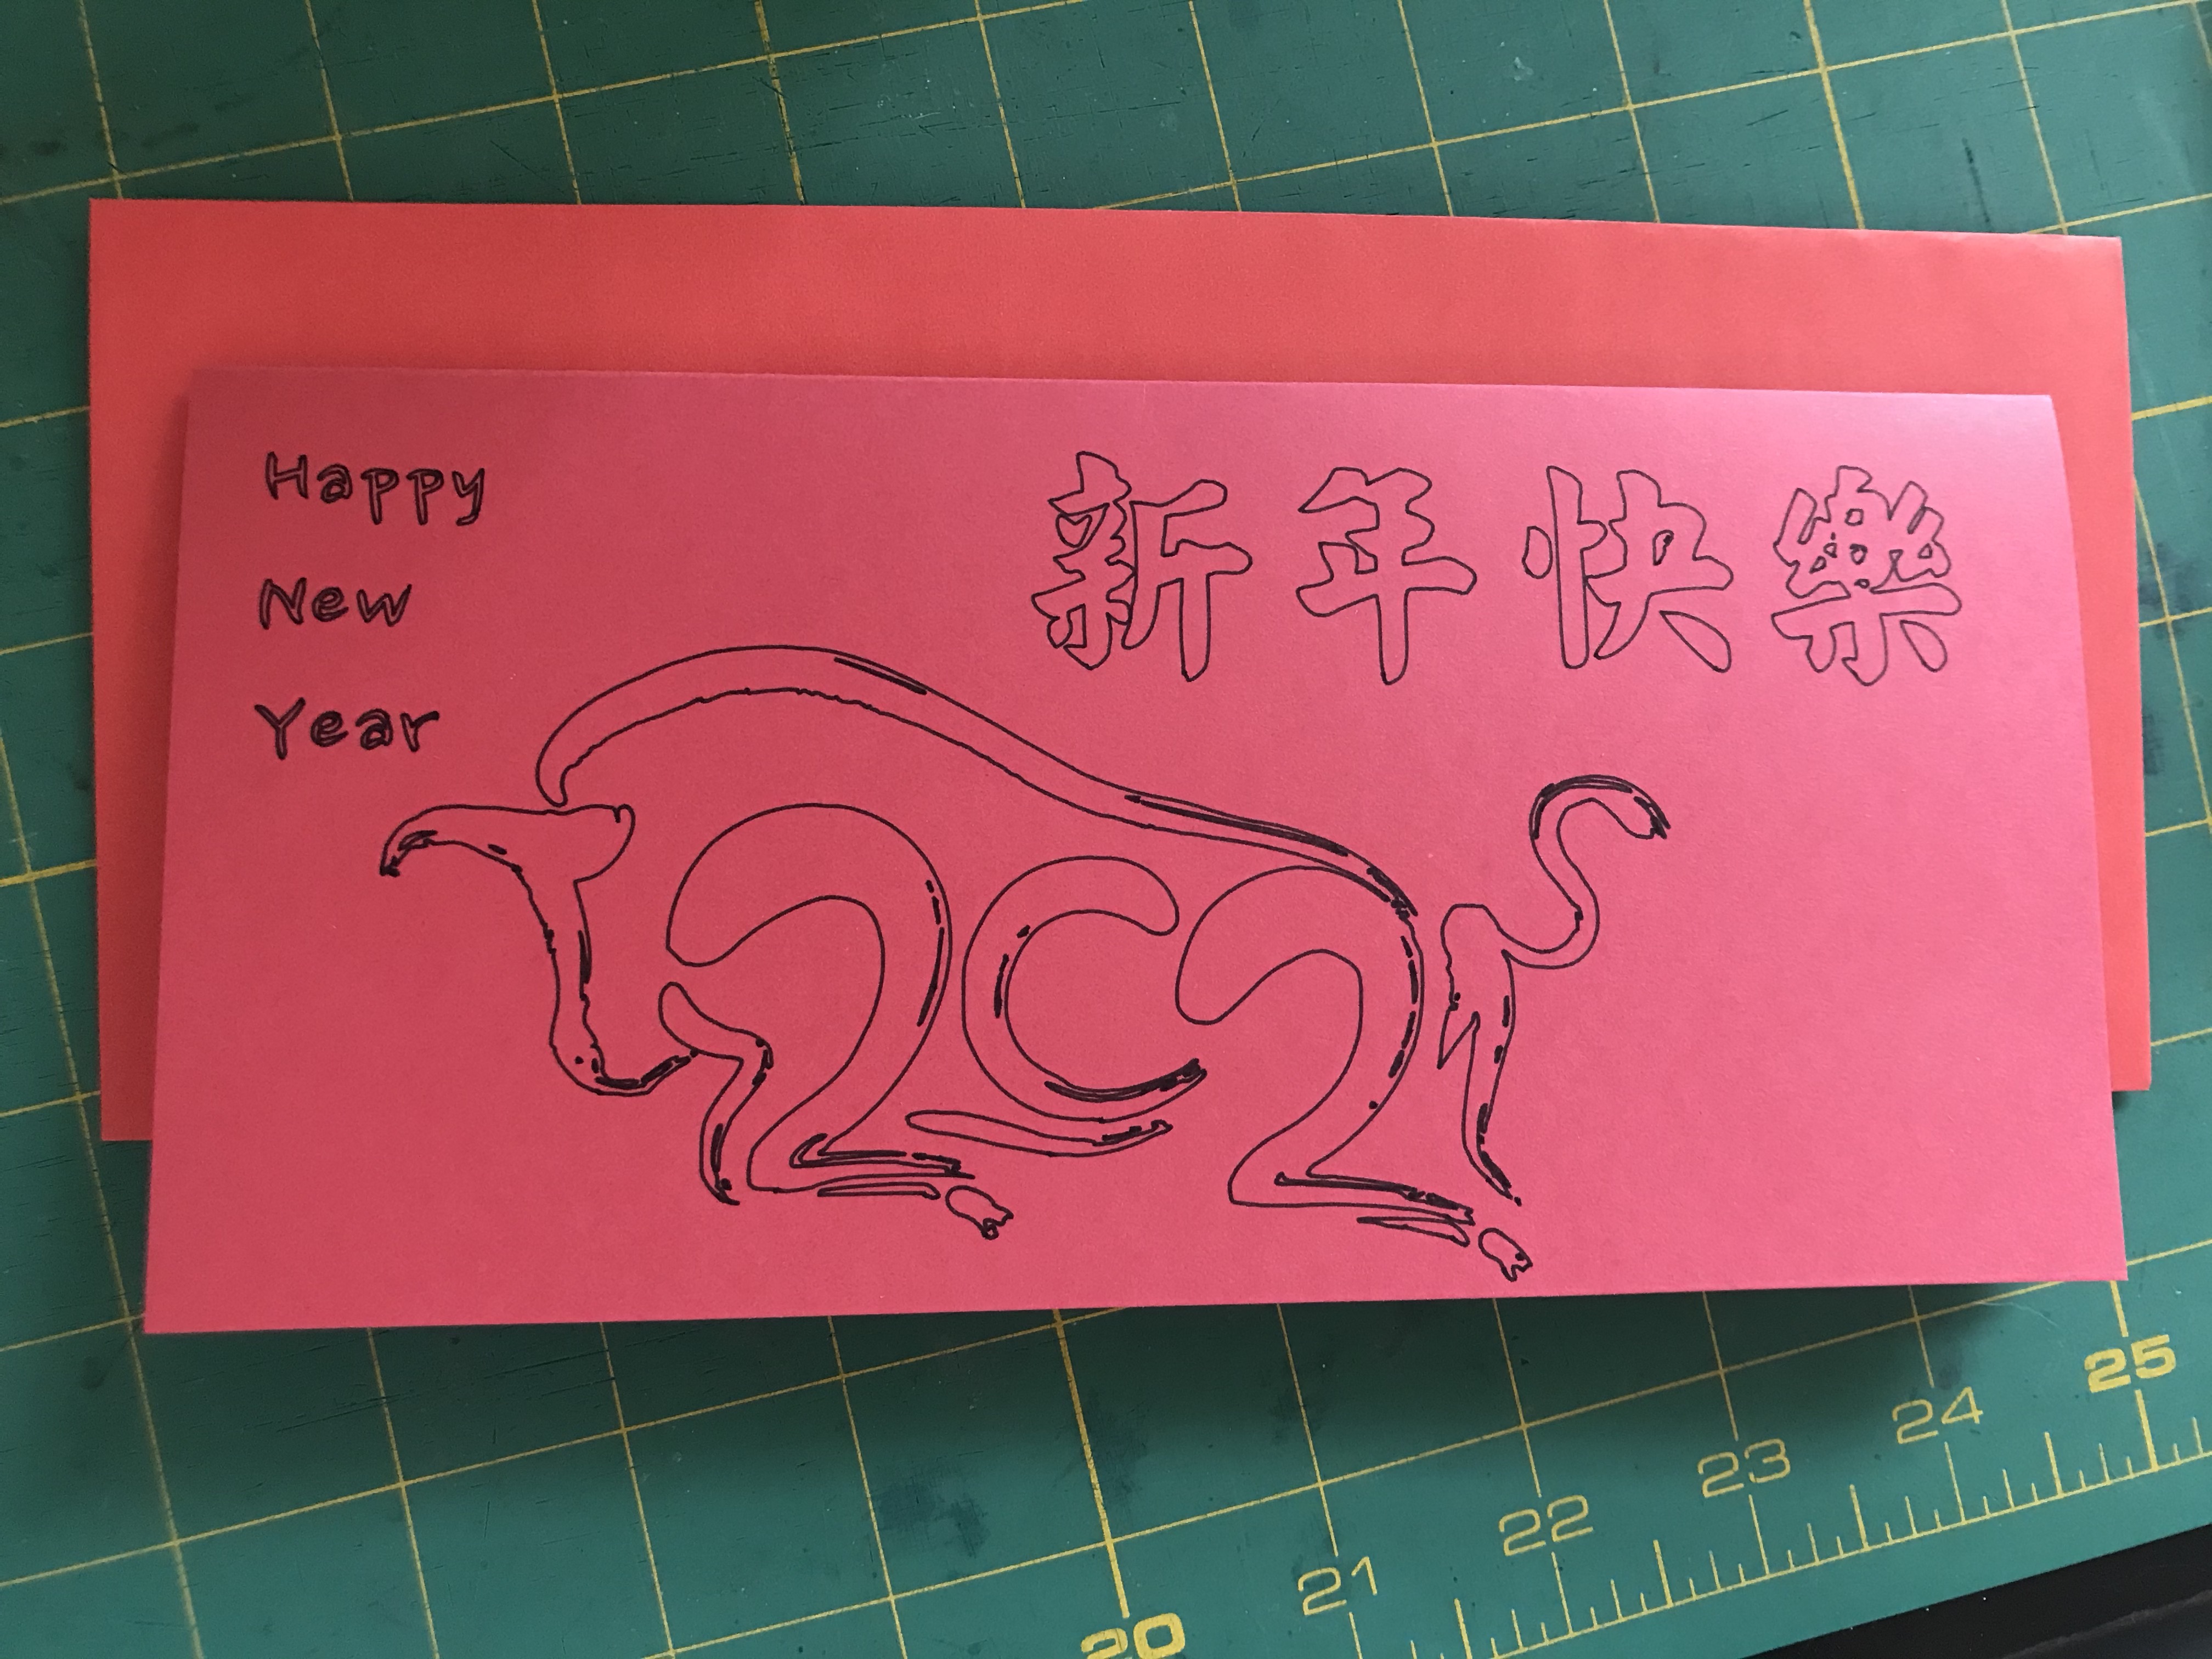 Happy
New
Year
新年快樂
25
24
23
22
21
20